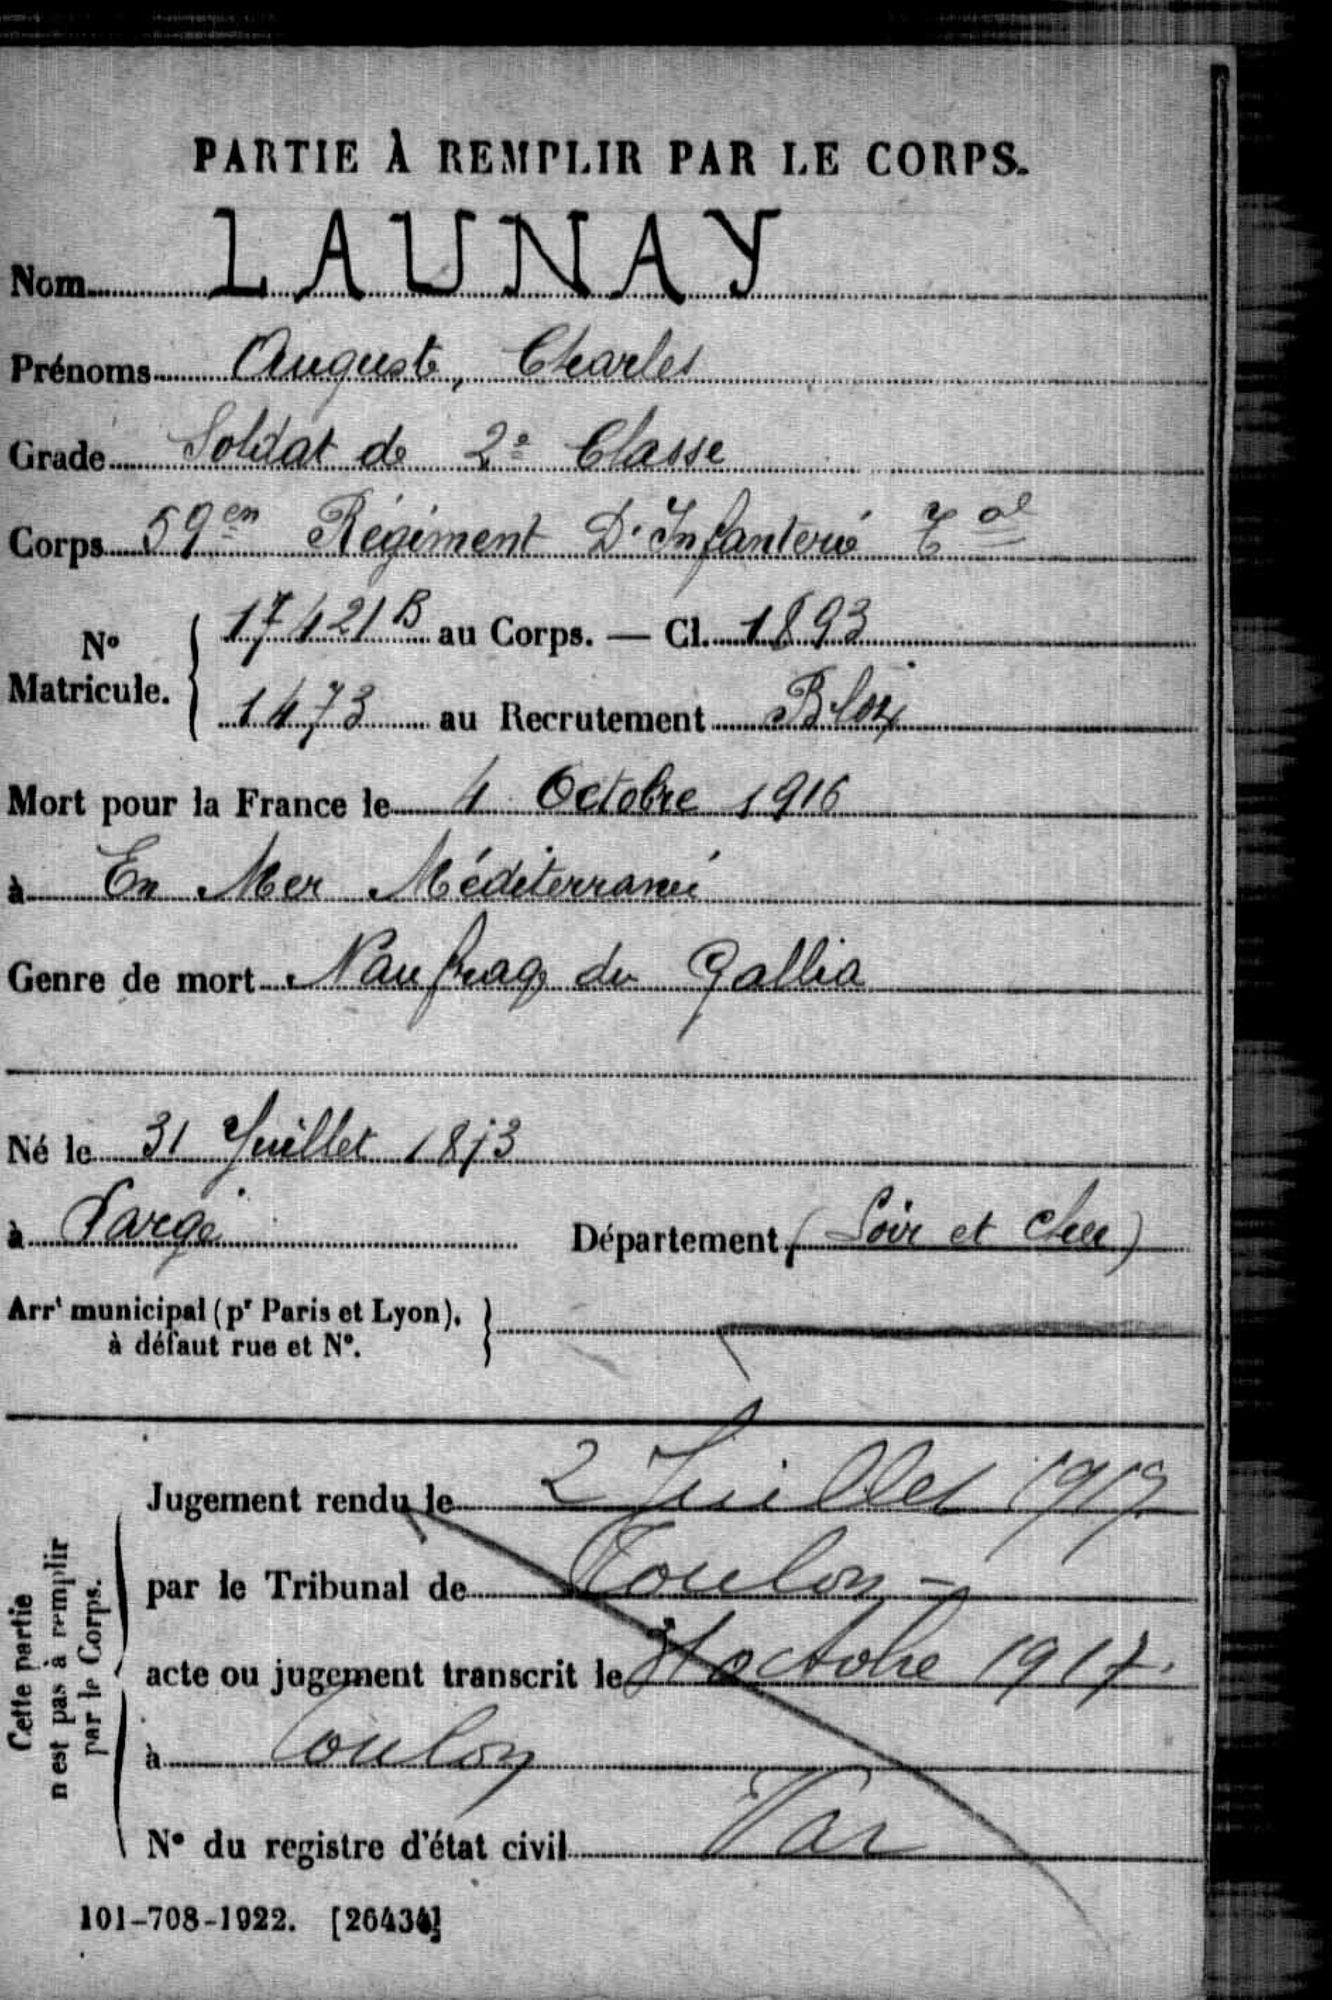 PARTIE À REMPLIR PAR LE CORPS.
Nom LAUNAY
Prénoms Auguste, Charles
Grade Soldat de 2e Classe
Corps 59en Régiment D'Infanterie Tal
No Matricule. { 17421B au Corps. — Cl. 1893
1473 au Recrutement Blois
Mort pour la France le 4 Octobre 1916
à En Mer Méditerranée
Genre de mort Naufrage du Gallia
Né le 31 Juillet 1873
à Sargé Département (Loir et Cher)
Arrt municipal (pr Paris et Lyon), à défaut rue et No. }
Cette partie n'est pas à remplir par le Corps.
Jugement rendu le 2 Juillet 1917
par le Tribunal de Toulon -
acte ou jugement transcrit le 31 octobre 1917.
à Toulon
No du registre d'état civil Var
101-708-1922. [26434]